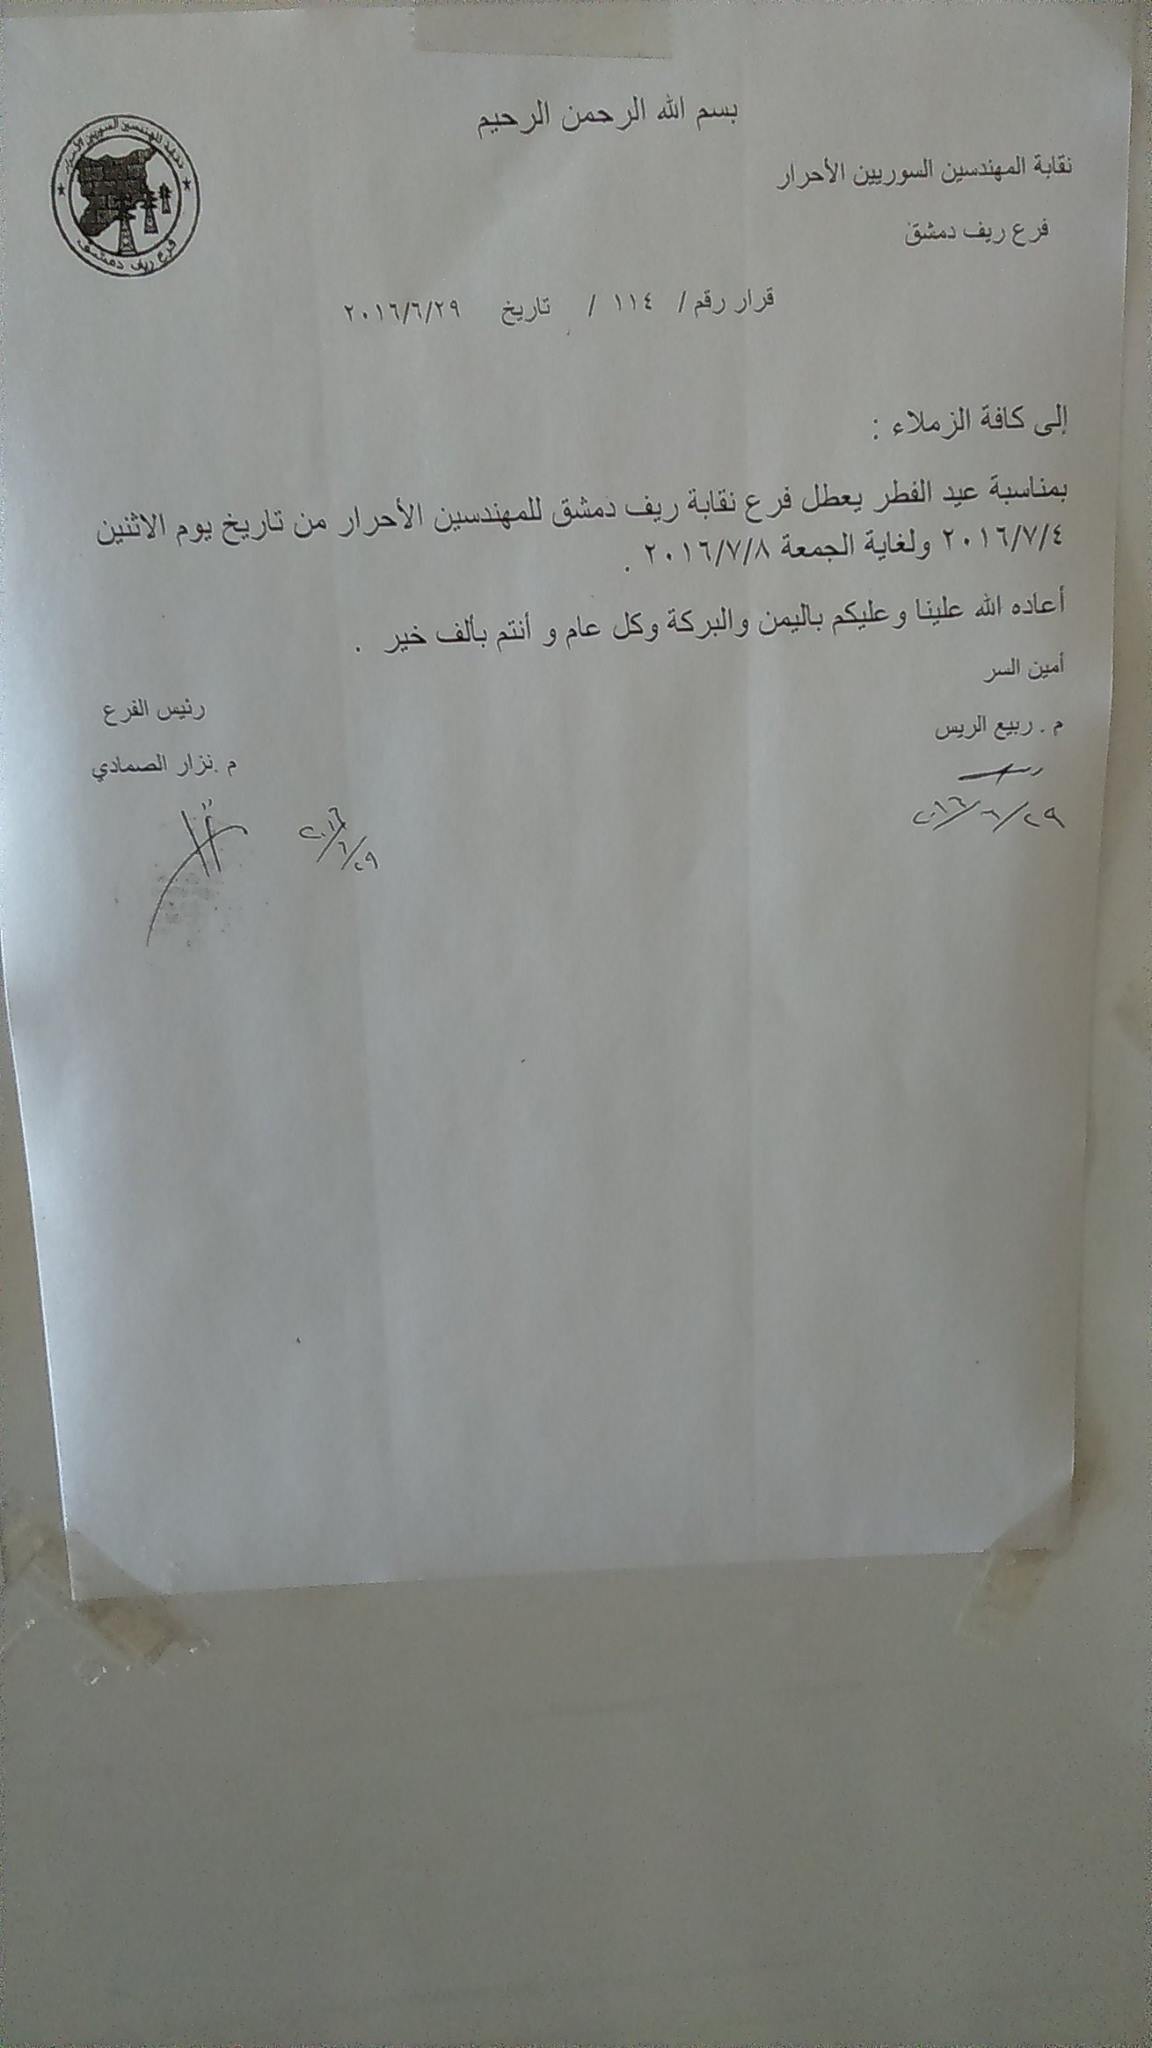 بسم الله الرحمن الرحيم
نقابة المهندسين السوريين الأحرار
فرع ريف دمشق
نقابة المهندسين السوريين الأحرار
فرع ريف دمشق
قرار رقم / ١١٤ / تاريخ ٢٠١٦/٦/٢٩
إلى كافة الزملاء :
بمناسبة عيد الفطر يعطل فرع نقابة ريف دمشق للمهندسين الأحرار من تاريخ يوم الاثنين
٢٠١٦/٧/٤ ولغاية الجمعة ٢٠١٦/٧/٨ .
أعاده الله علينا وعليكم باليمن والبركة وكل عام و أنتم بألف خير .
أمين السر
م . ربيع الريس
٢٠١٦/٦/٢٩
رئيس الفرع
م .نزار الصمادي
٢٠١٦/٦/٢٩